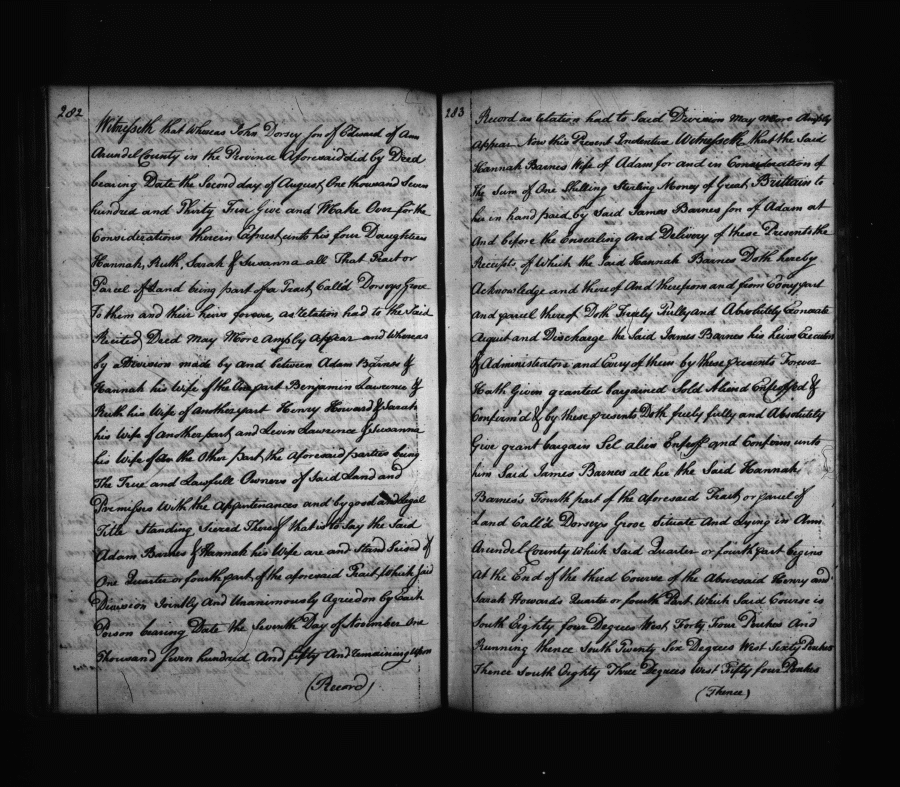 282
Witnesseth that Whereas John Dorsey son of Edward of Ann
Arundel County in the Province Aforesaid did by Deed
bearing Date the Second day of August One thousand Seven
hundred and Thirty Give and Make Over for the
Considerations therein Exprest unto his four Daughters
Hannah, Ruth, Sarah & Susanna all That Tract or
Parcel of Land being part of a Tract Calld Dorseys Grove
To them and their heirs forever, as relation had to the Said
Recited Deed May Moore Amply Appear and Whereas
by a Division made by and between Adam Barnes &
Hannah his Wife of the One part Benjamin Lawrence &
Ruth his Wife of Another part Henry Howard & Sarah
his Wife of Another part and Levin Lawrence & Susanna
his Wife of the Other part the aforesaid parties being
The True and Lawfull Owners of Said Land and
Premisses With the Appurtenances and by good and Legal
Title Standing Siezed Thereof that is to Say the Said
Adam Barnes & Hannah his Wife are and Stand Seized of
One Quarter or fourth part of the aforesaid Tract, Which Said
Division Jointly And Unanimously Agreed on by Each
Person bearing Date the Seventh Day of November One
Thousand Seven hundred And fifty And remaining Upon
(Record)
283
Record as relation had to Said Division May More Amply
Appear Now this Present Indenture Witnesseth that the Said
Hannah Barnes Wife of Adam for and in Consideration of
the Sum of One Shilling Sterling Money of Great Brittain to
her in hand paid by Said James Barnes son of Adam at
And before the Ensealing And Delivery of these Presents the
Receipts of Which the Said Hannah Barnes Doth hereby
Acknowledge and thereof And therefrom and from Every part
and parcel thereof Doth Freely Fully and Absolutely Exonerate
Acquit and Discharge the Said James Barnes his heirs Executors
& Administrators and Every of them by these presents Forever
Hath Given granted bargained Sold Aliend Enfeoffed &
Confirm'd & by these presents Doth freely fully and Absolutely
Give grant bargain Sel alien Enfeoff and Confirm unto
him Said James Barnes all her the Said Hannah
Barnes's Fourth part of the Aforesaid Tract or parcel of
Land Call'd Dorseys Grove Situate And Lying in Ann
Arundel County Which Said Quarter or fourth part begins
At the End of the third Course of the Abovesaid Henry and
Sarah Howards Quarter or fourth Part Which Said Course is
South Eighty four Degrees West Forty Four Perches And
Running thence South Twenty Six Degrees West Sixty Perches
Thence South Eighty Three Degrees West Fifty four Perches
(Thence)